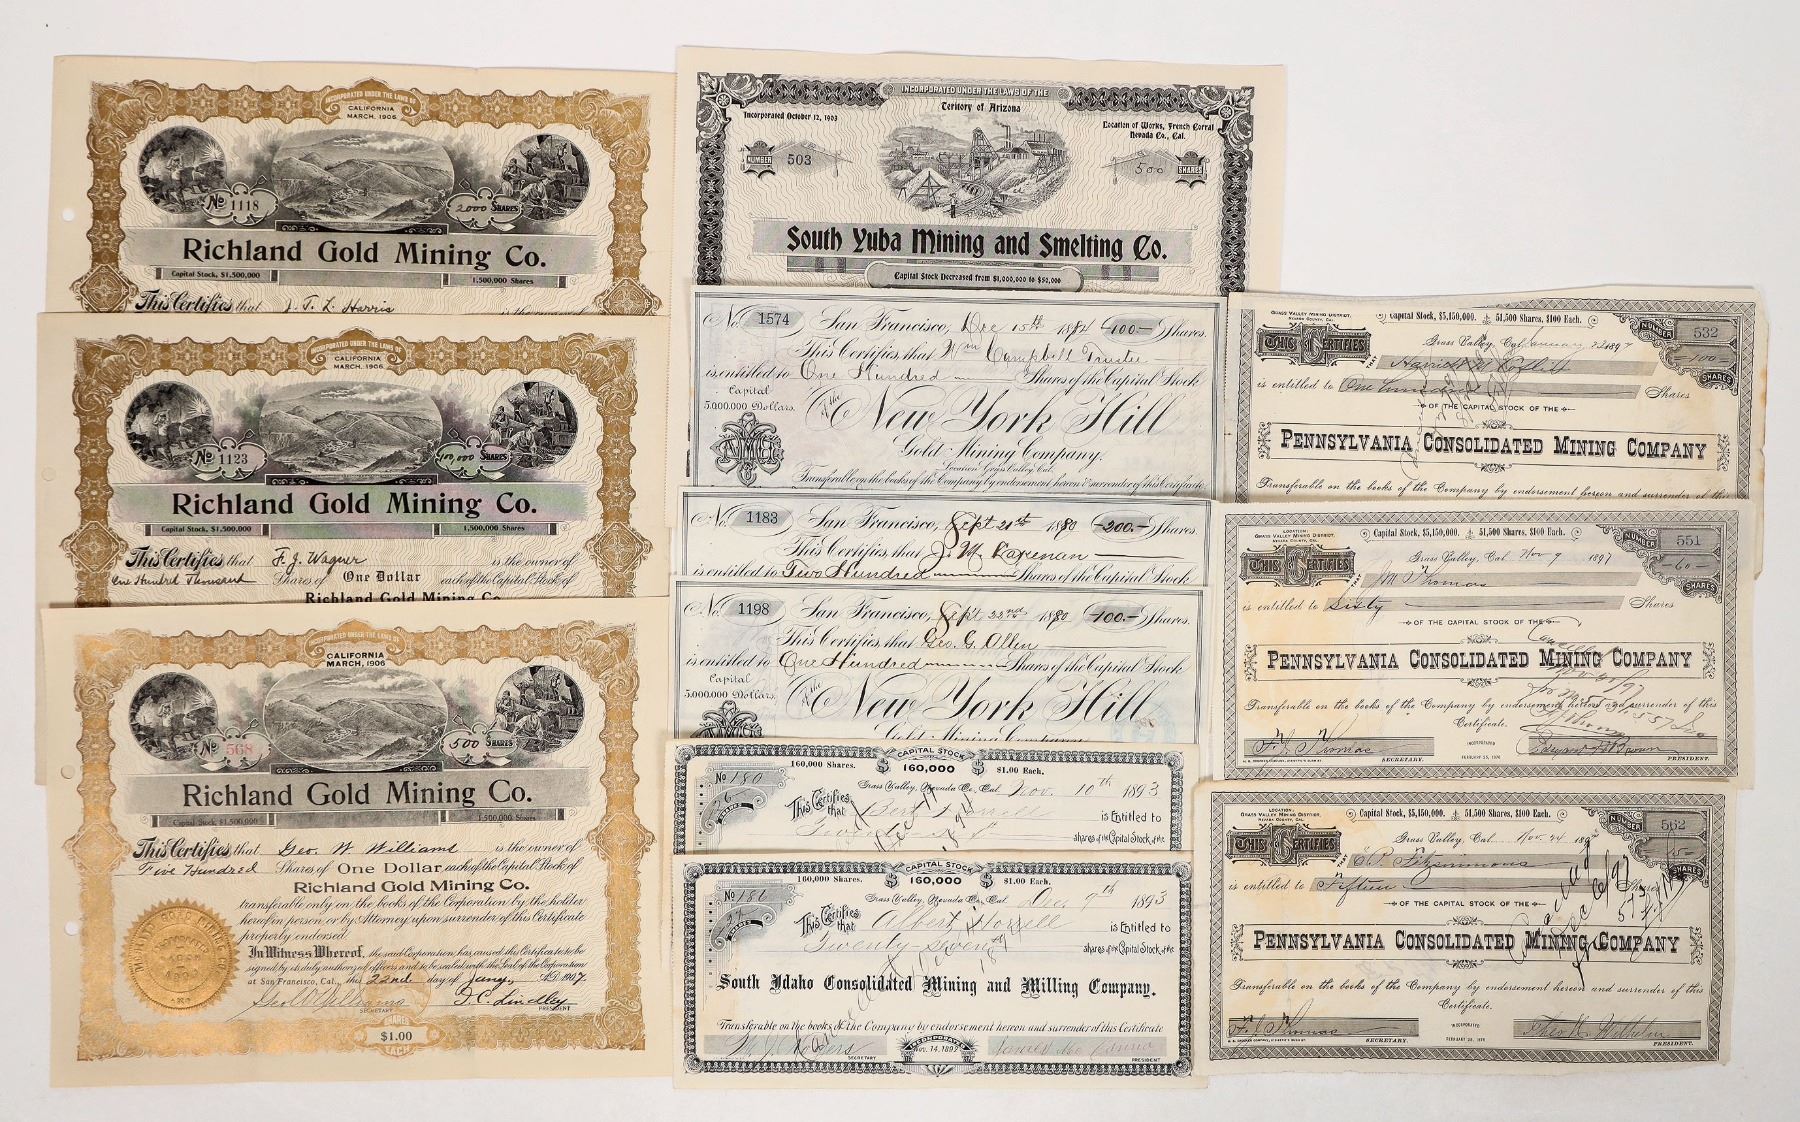 INCORPORATED UNDER THE LAWS OF
CALIFORNIA
MARCH, 1906
No 1118
2000 SHARES
Richland Gold Mining Co.
Capital Stock, $1,500,000
1,500,000 Shares
This Certifies that J. T. L. Harris
INCORPORATED UNDER THE LAWS OF
CALIFORNIA
MARCH, 1906
No 1123
100,000 SHARES
Richland Gold Mining Co.
Capital Stock, $1,500,000
1,500,000 Shares
This Certifies that F. J. Wagner is the owner of
One Hundred Thousand Shares of One Dollar each of the Capital Stock of
Richland Gold Mining Co
INCORPORATED UNDER THE LAWS OF
CALIFORNIA
MARCH, 1906
No 568
500 SHARES
Richland Gold Mining Co.
Capital Stock, $1,500,000
1,500,000 Shares
This Certifies that Geo. W Williams is the owner of
Five Hundred Shares of One Dollar each of the Capital Stock of
Richland Gold Mining Co.
transferable only on the books of the Corporation by the holder
hereof in person or by Attorney upon surrender of this Certificate
properly endorsed.
In Witness Whereof, the said Corporation has caused this Certificate to be
signed by its duly authorized officers and to be sealed with the Seal of the Corporation
at San Francisco, Cal., this 22nd day of Jany, A.D. 1907
Geo W Williams
SECRETARY
J. C. Lindley
PRESIDENT
SHARES
$1.00
EACH
INCORPORATED UNDER THE LAWS OF THE
Territory of Arizona
Incorporated October 12, 1903
Location of Works, French Corral
Nevada Co., Cal.
NUMBER 503
500 SHARES
South Yuba Mining and Smelting Co.
Capital Stock Decreased from $1,000,000 to $50,000
No. 1574 San Francisco, Dec 15th 1882 -100- Shares.
This Certifies that Wm Campbell Trustee
is entitled to One Hundred Shares of the Capital Stock
Capital
5.000.000 Dollars.
of the
New York Hill
Gold Mining Company.
Location Grass Valley Cal.
Transferable on the books of the Company by endorsement hereon & surrender of this Certificate
No. 1183 San Francisco, Sept 21th 1880 -200- Shares.
This Certifies that J. M.
is entitled to Two Hundred Shares of the Capital Stock
No. 1198 San Francisco, Sept 22nd 1880 -100- Shares.
This Certifies that Geo. G. Allen
is entitled to One Hundred Shares of the Capital Stock
Capital
5.000.000 Dollars.
of the
New York Hill
Gold Mining Company
CAPITAL STOCK
160,000 Shares. $ 160,000 $ $1.00 Each.
No 180
26
SHARES
Grass Valley, Nevada Co., Cal. Nov. 10th 1893
This Certifies
that
is Entitled to
shares of the Capital Stock of the
CAPITAL STOCK
160,000 Shares. $ 160,000 $ $1.00 Each.
No 181
27
SHARES
Grass Valley, Nevada Co., Cal. Dec 9th 1893
This Certifies
that Albert
is Entitled to
Twenty-seven
shares of the Capital Stock of the
South Idaho Consolidated Mining and Milling Company.
Transferable on the books of the Company by endorsement hereon and surrender of this Certificate
SECRETARY
INCORPORATED
Nov. 14, 1892
PRESIDENT
GRASS VALLEY MINING DISTRICT,
NEVADA COUNTY, CAL.
Capital Stock, $5,150,000. 51,500 Shares, $100 Each.
NUMBER 532
-100-
SHARES
THIS CERTIFIES
THAT
Grass Valley, Cal. January 23 1897
is entitled to One hundred Shares
OF THE CAPITAL STOCK OF THE
PENNSYLVANIA CONSOLIDATED MINING COMPANY
Transferable on the books of the Company by endorsement hereon and surrender of this
LOCATION:
GRASS VALLEY MINING DISTRICT,
NEVADA COUNTY, CAL.
Capital Stock, $5,150,000. 51,500 Shares, $100 Each.
NUMBER 551
-60-
SHARES
THIS CERTIFIES
THAT
Grass Valley, Cal. Nov 9 1897
J M Thomas
is entitled to Sixty Shares
OF THE CAPITAL STOCK OF THE
PENNSYLVANIA CONSOLIDATED MINING COMPANY
Transferable on the books of the Company by endorsement hereon and surrender of this
Certificate.
F. J. Thomas
SECRETARY.
INCORPORATED
FEBRUARY 25, 1876
PRESIDENT.
LOCATION:
GRASS VALLEY MINING DISTRICT,
NEVADA COUNTY, CAL.
Capital Stock, $5,150,000. 51,500 Shares, $100 Each.
NUMBER 562
15
SHARES
THIS CERTIFIES
THAT
Grass Valley, Cal. Nov 24 1897
Fitzsimmons
is entitled to Fifteen Shares
OF THE CAPITAL STOCK OF THE
PENNSYLVANIA CONSOLIDATED MINING COMPANY
Transferable on the books of the Company by endorsement hereon and surrender of this
Certificate.
F. J. Thomas
SECRETARY.
INCORPORATED
FEBRUARY 25, 1876
PRESIDENT.